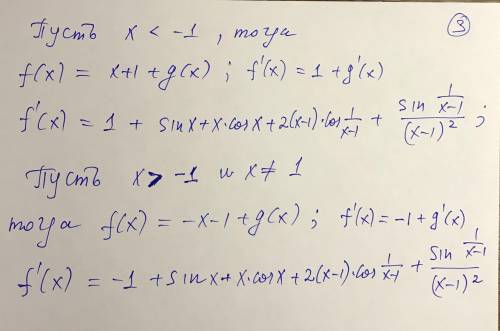 Пусть x < -1, тогда ③
f(x) = x+1+g(x); f'(x) = 1+g'(x)
f'(x) = 1 + sin x + x·cos x + 2(x-1)·cos 1/(x-1) + (sin 1/(x-1))/(x-1)²;
Пусть x > -1 и x ≠ 1
тогда f(x) = -x-1+g(x); f'(x) = -1+g'(x)
f'(x) = -1 + sin x + x·cos x + 2(x-1)·cos 1/(x-1) + (sin 1/(x-1))/(x-1)²